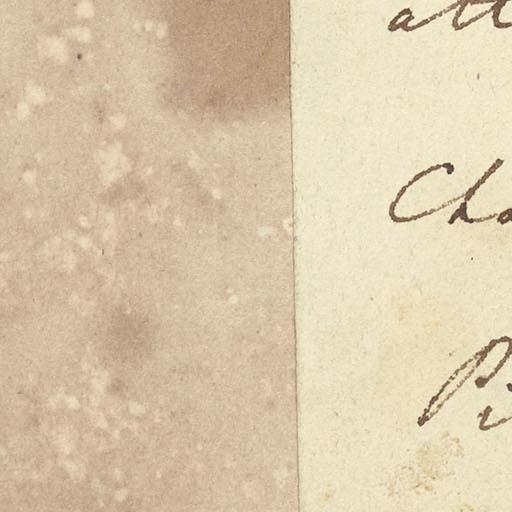 att
Cha
Pi